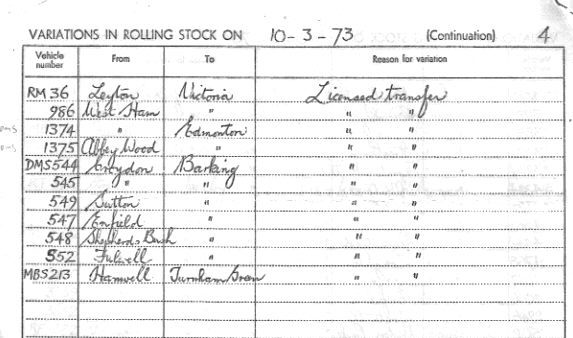 VARIATIONS IN ROLLING STOCK ON 10-3-73 (Continuation) 4
Vehicle number From To Reason for variation
RM 36 Leyton Victoria Licensed transfer
986 West Ham " " "
1374 " Edmonton " "
1375 Abbey Wood " " "
DMS544 Croydon Barking " "
545 " " " "
549 Sutton " " "
547 Enfield " " "
548 Shepherds Bush " " "
552 Fulwell " " "
MBS213 Hanwell Turnham Green " "